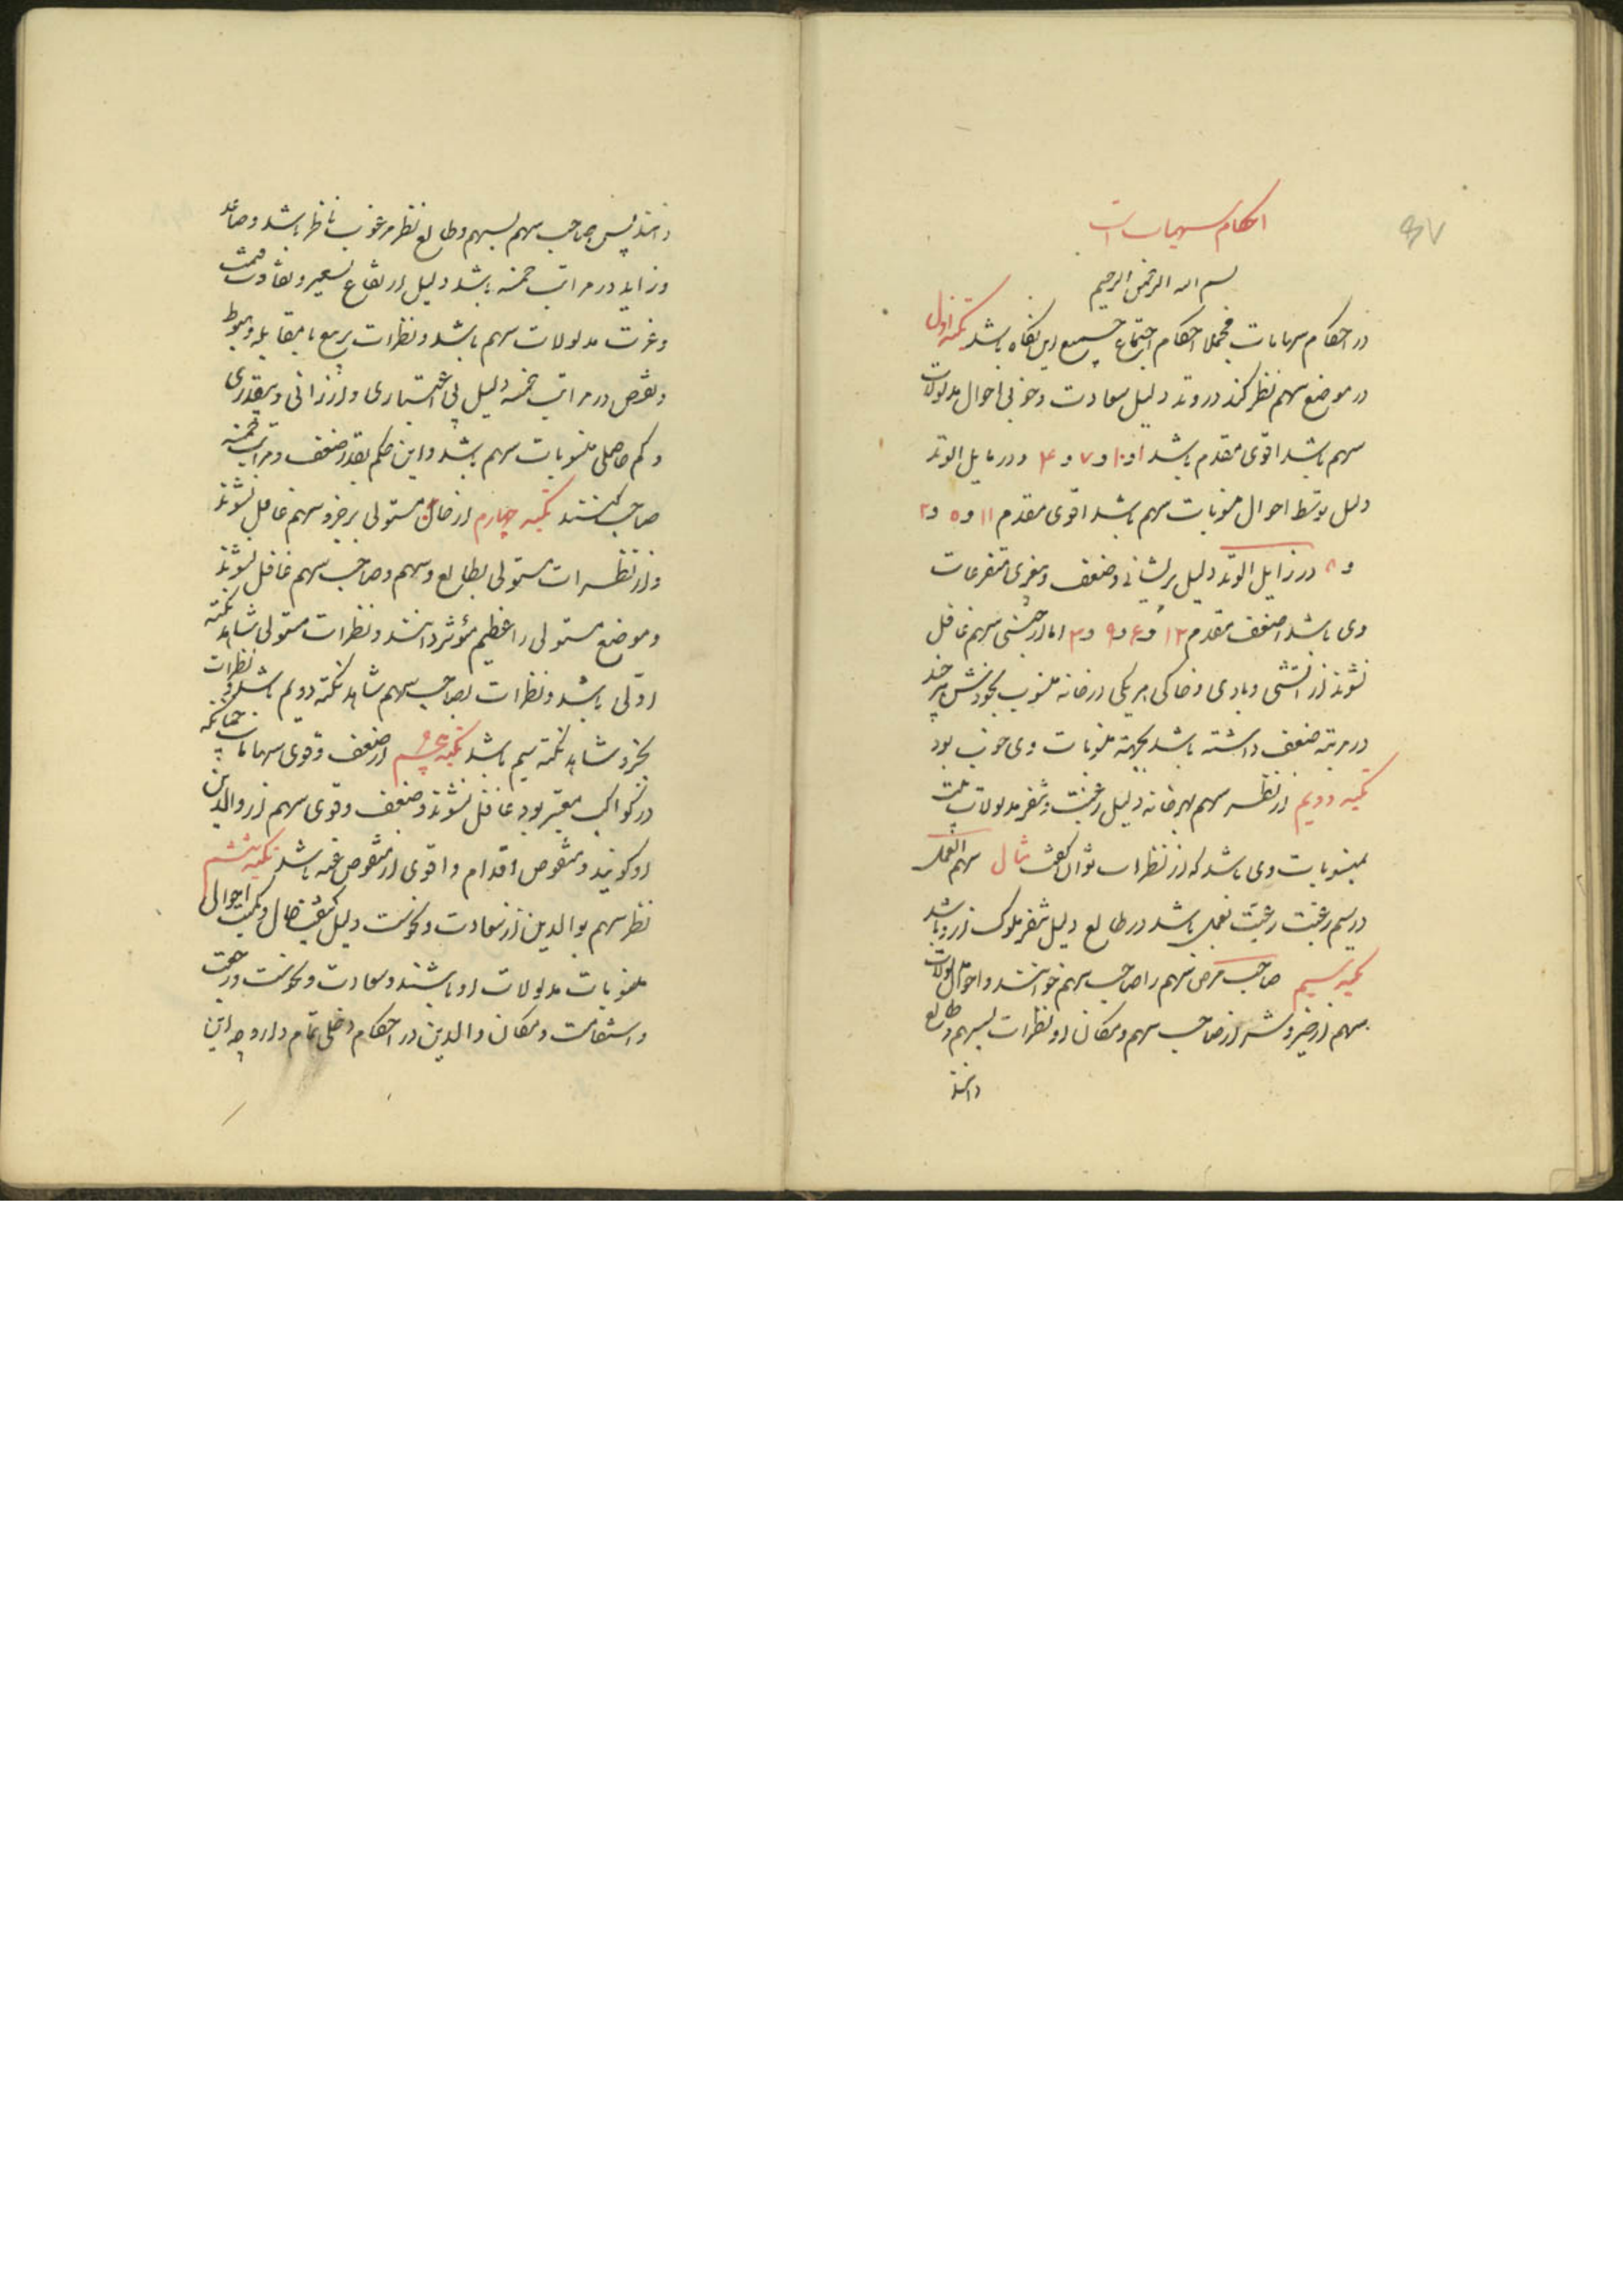 احکام سهمیات است
بسم الله الرحمن الرحیم
در احکام سهامات مجملا احکام اجتماع جمیع این نکاه باشد نکته اول
در موضع سهم نظر کند در وتد دلیل سعادت و خوبی احوال مدلولات
سهم باشد اقوی مقدم باشد ا و ۱۰ و ۷ و ۴ و در مایل الوتد
دلیل توسط احوال منوبات سهم باشد اقوی مقدم ۱۱ و ۵ و ۲
و ۸ در زایل الوتد دلیل پریشانی و ضعف و متفرعات
وی باشد اضعف مقدم ۱۲ و ۶ و ۹ و ۳ اما از سهم غافل
نشوند از آتشی و بادی و خاکی هر یکی در خانه منسوب بخودش هر چند
در مرتبه ضعف داشته باشد بجهته منوبات وی خوب بود
نکته دویم از نظر سهم بهر خانه دلیل رغبت و مدلولات بیت
بمنسوبات وی باشد که از نظرات توان گفت مثال سهم العمل
در سیم رغبت رغبت بعمل باشد در طالع دلیل ملوک از و باشد
نکته سیم صاحب مرض سهم را صاحب سهم خوانند و احوال مدلولات
سهم از خیر و شر از صاحب سهم و مکان او نظرات بسهم و طالع
دانند
دانند پس صاحب سهم بسهم و طالع نظر مرغوب ناظر باشد و صاعد
و زاید در مراتب خمسه باشد دلیل ارتفاع تسعیر و تفاوت قیمت
و عزت مدلولات سهم باشد و نظرات تربیع یا مقابله و هبوط
و نقص در مراتب خمسه دلیل بی اعتباری و ارزانی و بیقدری
و کم حاصلی منسوبات سهم باشد و این حکم بقدر ضعف و مراتب خمسه
صاحب کنند نکته چهارم از خانه مستولی بر جزو سهم غافل نشوند
و از نظرات مستولی بطالع و سهم و صاحب سهم غافل نشوند
و موضع مستولی را عظیم مؤثر دانند و نظرات مستولی شاهد نکته
اولی باشد و نظرات بصاحب سهم شاهد نکته دویم باشد و نظرات
بجزو شاهد نکته سیم باشد نکته پنجم از ضعف و قوی سهامات چنانکه
در کواکب معتبر بود غافل نشوند و ضعف و قوی سهم از والدین
او گویند و منقوص اقدام و اقوی از منقوص عنه باشد نکته ششم
نظر سهم بوالدین از سعادت و نحوست دلیل کیفیت حال و کمیت احوال
منسوبات مدلولات او باشند و سعادت و نحوست و رجعت
و استقامت و مکان والدین در احکام دخلی تمام دارد چه این